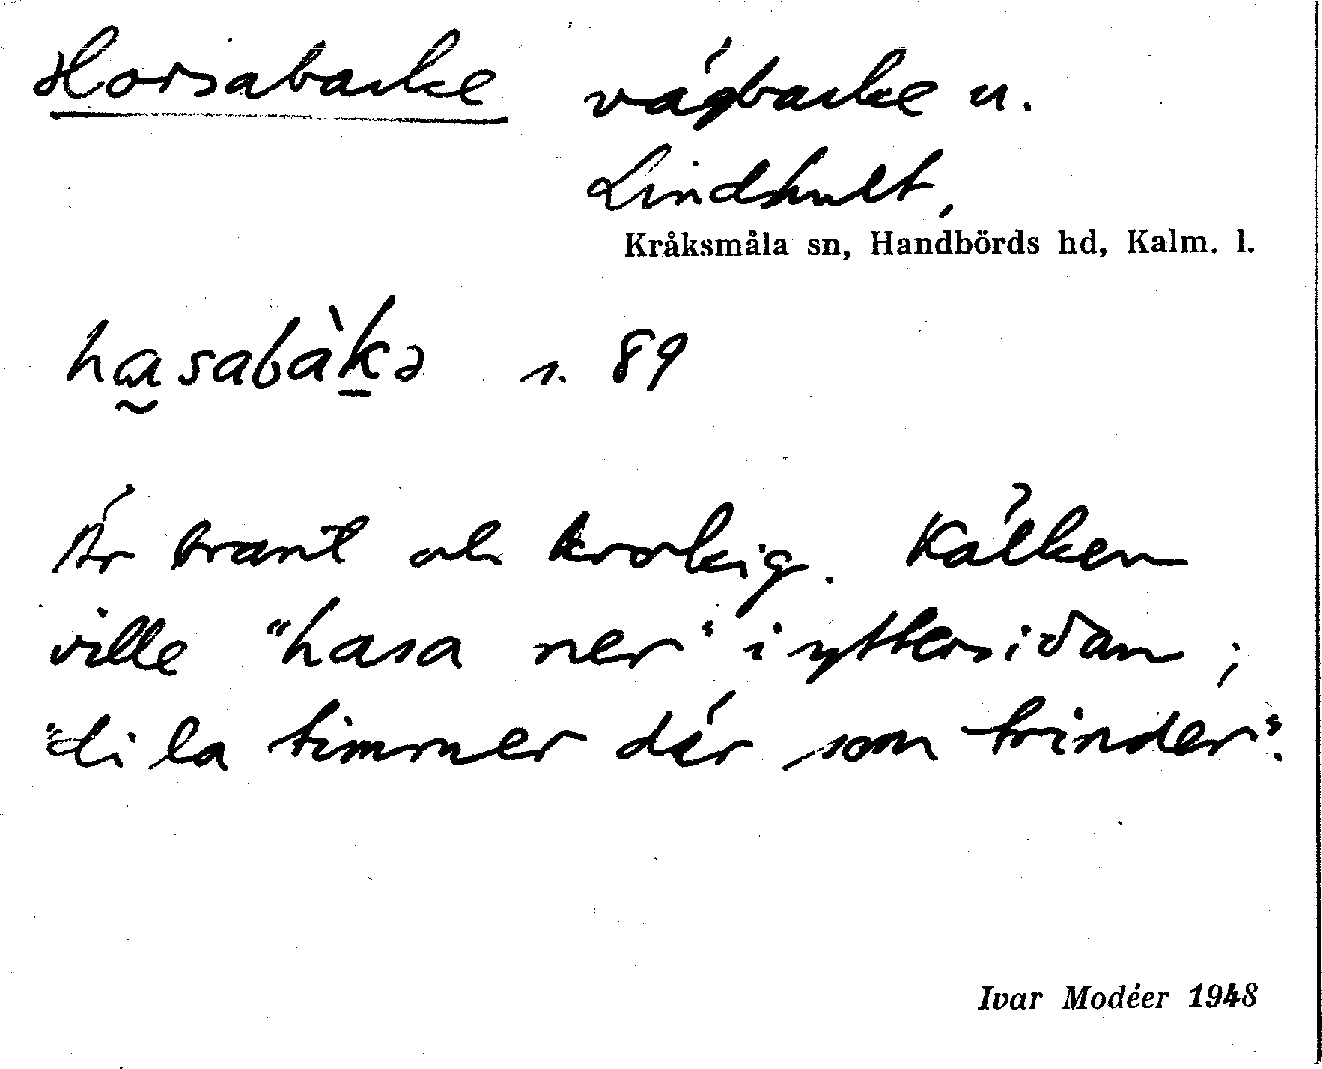 Horsabacke vägbacke u.
Lindshult,
Kråksmåla sn, Handbörds hd, Kalm. l.
hasabàkə s. 89
Är brant och krokig. Kälken
ville "hasa ner" i yttersidan;
"di la timmer där som hinder".
Ivar Modéer 1948